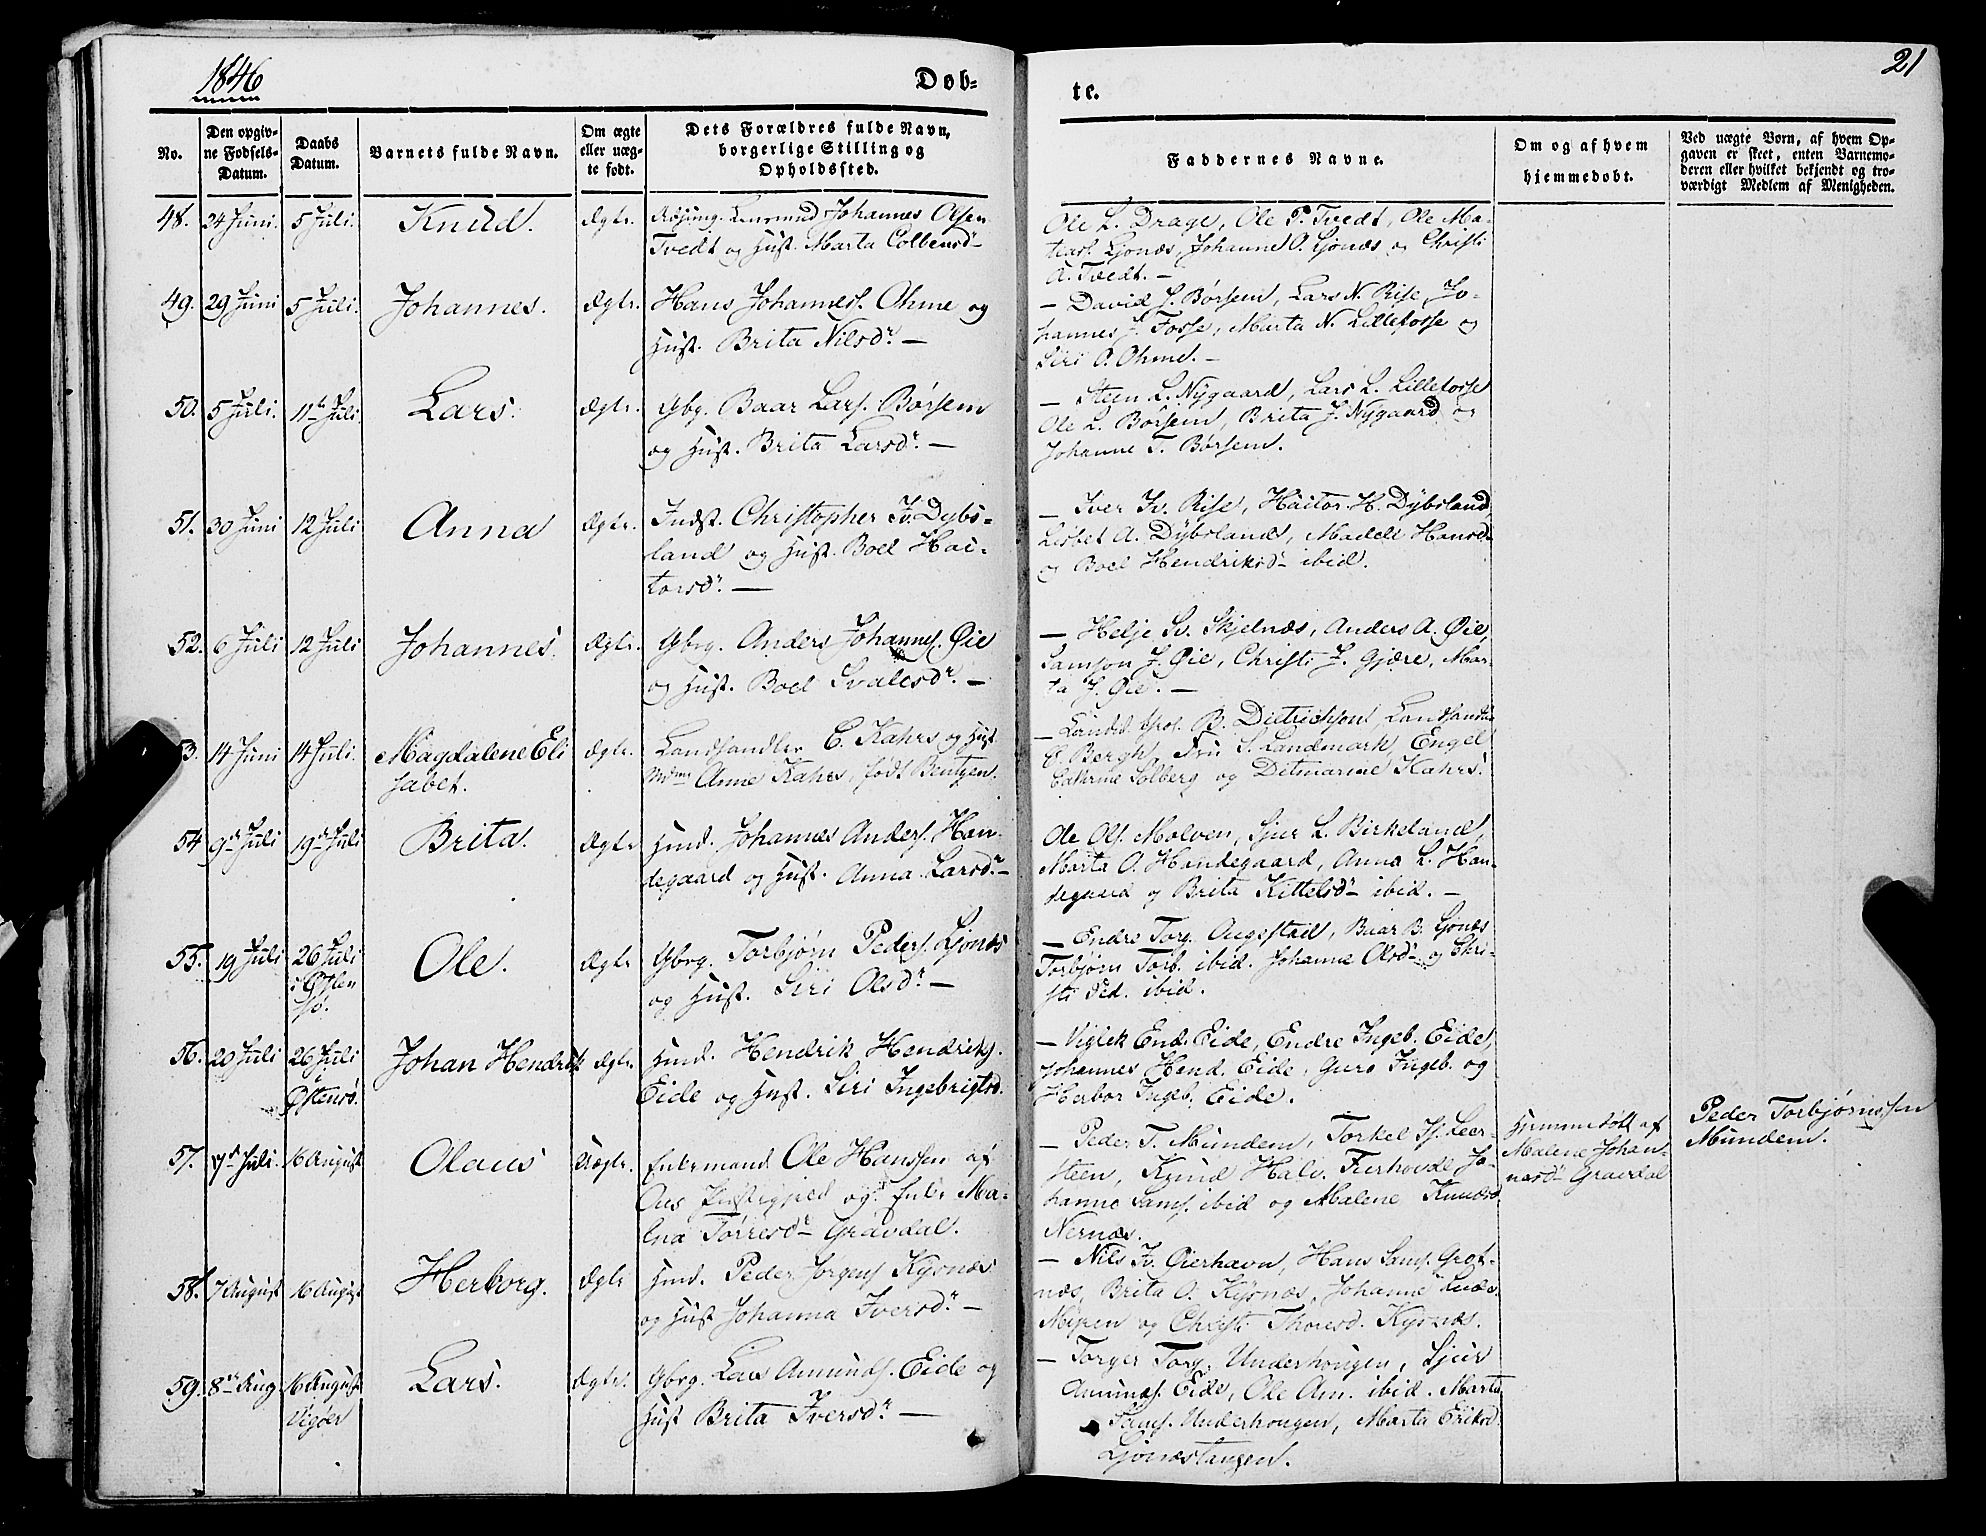 1846
Døb-
te.
21
No.
Den opgiv-
ne Fødsels-
Datum.
Daabs
Datum.
Barnets fulde Navn.
Om ægte
eller uæg-
te født.
Dets Forældres fulde Navn,
borgerlige Stilling og
Opholdssted.
Faddernes Navne.
Om og af hvem
hjemmedøbt.
Ved uægte Børn, af hvem Op-
gaven er skeet, enten Barnemo-
deren eller hvilket bekjendt og tro-
værdigt Medlem af Menigheden.
48. 24 Juni. 5 Juli. Knud. Ægte. Lensmand Johannes Olsen
Tvedt og Hust. Marta Colbensdr —
Ole L. Drage, Ole P. Tvedt, Ole Ma-
thias. Ljonæs, Johanne O. Ljonæs og Christi
A. Tvedt. —
49. 29 Juni 5 Juli. Johannes. Ægte. Hans Johanness. Ohme og
Hust. Brita Nilsdr. —
— David J. Børsem, Lars N. Rise, Jo-
hannes J. Fosse, Marta N. Lillefosse og
Siri O. Ohme. —
50. 5 Juli. 11te Juli. Lars. Ægte. Gbrg. Baar Lars. Børsem
og Hust. Brita Larsdr. —
— Steen L. Nygaard, Lars L. Lillefosse
Ole L. Børsem, Brita J. Nygaard og
Johanne T. Børsem.
51. 30 Juni 12 Juli Anna Ægte. Indst. Christopher Iv. Dybs-
land og Hust. Boel Hai-
torsdr. —
— Iver Iv. Rise, Haitor H. Dybsland,
Lisbet A. Dybsland, Madele Hansd.
og Boel Hendriksdr ibid.
52. 6 Juli 12 Juli Johannes. Ægte. Gbrg. Anders Johanness. Øie
og Hust. Boel Svalesdr. —
— Helje Sv. Skjelnæs, Anders A. Øie,
Samson J. Øie, Christi J. Gjære, Mar-
ta J. Øie. —
53. 14 Juni 14 Juli. Magdalene Eli
sabet. Ægte. Landhandler C. Kahrs og Hust.
Mdme Anne Kahrs, født Bentzen.
— B. Dietrichson, Landhandler
C. Bergh, Fru S. Landmark, Engel
Cathrine Solberg og Ditmarine Kahrs.
54 9de Juli 19de Juli Brita. Ægte Hmd. Johannes Anders. Han-
degaard og Hust. Anna Larsdr. —
Ole Ols. Molven, Sjur L. Birkeland,
Marta O. Handegaard, Anna L. Han-
degaard og Brita Kittelsdr ibid. —
55. 19 Juli 26 Juli
i Østen
sø. Ole. Ægte Gbrg. Torbjørn Peders. Ljonæs
og Hust. Siri Olsdr. —
— Endre Torg. Augestad, Baar B. Ljonæs
Torbjørn Torb. ibid. Johanne Olsdr og Chri-
sti Ped. ibid.
56. 20 Juli 26 Juli
i
Østensø. Johan Hendrik Ægte. Hmd. Hendrik Hendriks.
Eide og Hust. Siri Ingebrigtsd.
— Viglek End. Eide, Endre Ingeb. Eide,
Johannes Hend. Eide, Guro Ingeb. og
Herbor Ingeb. Eide.
57. 7de Juli. 16 August Olaus Uægte. Enkemand Ole Hanssen af
Aus Præstegjeld og Enke Ma-
lena Torresdr Gravdal.
— Peder T. Mundem, Torkel Sj. Leer-
steen, Knud Halv. Fierhovde, Jo-
hanne Sams. ibid og Malene Knudsd.
Nernæs.
Hjemmedøbt af
Malene Johan-
nesdr Gravdal
Peder Torbjørnssen
Mundem.
58. 7 August 16 August Herborg. Ægte Hmd. Peder Jørgens. Kysnæs
og Hust Johanna Iversdr. —
— Nils Iv. Oierhavn, Hans Sams. Grot-
næs, Brita O. Kysnæs, Johanne
Myren og Christi Thoresd. Kysnæs.
59. 8de Aug 16 August
Vigøer Lars. Ægte. Gbrg. Lars Amunds. Eide og
Hust Brita Iversdr. —
— Torger Torg. Underhougen, Sjur
Amunds. Eide, Ole Am. ibid. Marta
Sams. Underhougen, Marta Eriksd.
Ljonæstangen.